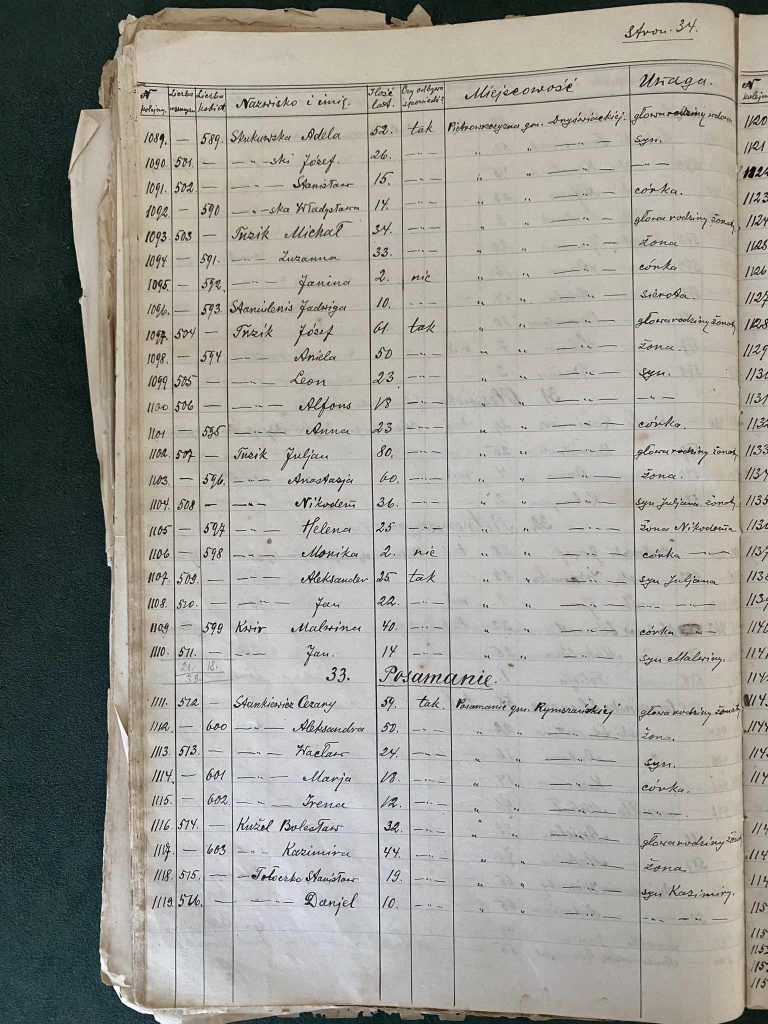 Stron. 34.
N kolejny. Liczba mężczyzn Liczba kobiet Nazwisko i imię. Ilość lat. Czy odbywa spowiedź Miejscowość Uwaga.
1089. — 589. Skukowska Adela 52. tak Pietrowszczyzna gm. Dryświackiej. głowa rodziny wdowa
1090. 501. — —"— ski Józef. 26. —"— " " —"— " syn.
1091. 502. — —"— Stanisław 15. —"— " " —"— " —"—
1092. — 590 —"— ska Władysława 14. —"— " " —"— " córka.
1093. 503 — Trzik Michał 34. —"— " " —"— " głowa rodziny żonaty
1094 — 591. —"— Zuzanna 33. —"— " " —"— " żona
1095. — 592. —"— Janina 2. nie " " —"— " córka
1096. — 593. Staniulenis Jadwiga 10. —"— " " —"— " sierota.
1097. 504 — Trzik Józef 61. tak " " —"— " głowa rodziny żonaty
1098. — 594 —"— Aniela 50 —"— " " —"— " żona.
1099. 505 — —"— Leon 23 —"— " " —"— " syn.
1100 506 — —"— Alfons 18 —"— " " —"— " —"—
1101 — 595 —"— Anna 23 —"— " " —"— " córka.
1102. 507. — Trzik Juljan 80. —"— " " —"— " głowa rodziny żonaty
1103. — 596. —"— Anastazja 60. —"— " " —"— " żona.
1104. 508 — —"— Nikodem 36. —"— " " —"— " syn Juljana żonaty
1105 — 597 —"— Helena 25 —"— " " —"— " żona Nikodema
1106 — 598 —"— Monika 2. nie " " —"— " córka —"—
1107. 509. — —"— Aleksander 25 tak " " —"— " syn Juljana
1108. 510. — —"— Jan 22. —"— " " —"— " —"— —"—
1109 — 599 Kwir Malwina 40. —"— " " —"— " córka —
1110. 511. — —"— Jan. 14 —"— " " —"— " syn Malwiny.
21. 12.
33.
33. Posamanie.
1111. 512 — Stankiewicz Cezary 59. tak. Posamanie gm. Rymszańskiej głowa rodziny żonaty
1112. — 600 —"— Aleksandra 50. —"— " " —"— " żona.
1113. 513. — —"— Wacław 24. —"— " " —"— " syn.
1114. — 601 —"— Marja 18. —"— " " —"— " córka.
1115. — 602 —"— Irena 12. —"— " " —"— " —"—
1116. 514. — Kużel Bolesław 32. —"— " " —"— " głowa rodziny żonaty
1117. — 603 —"— Kazimira 44. —"— " " —"— " żona.
1118. 515. — Tołoczko Stanisław 19. —"— " " —"— " syn Kazimiry.
1119. 516. — —"— Danjel 10. —"— " " —"— " —"— —"—
N kolejny
1120
1121
1122
1123
1124
1125
1126
1127
1128
1129
1130
1131
1132
1133
1134
1135
1136
1137
1138
1139
1140
1141